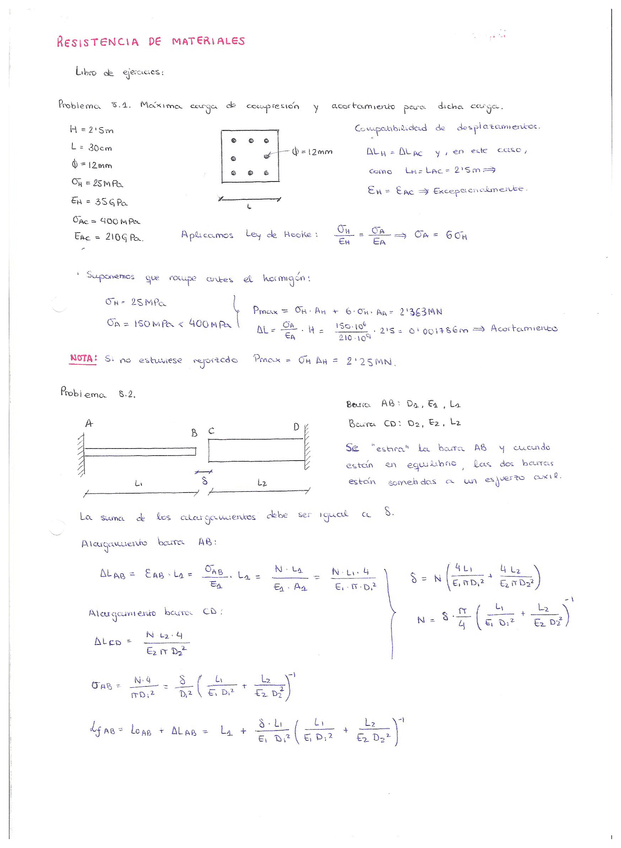 RESISTENCIA DE MATERIALES
Libro de ejercicios:
Problema 5.1. Máxima carga de compresión y acortamiento para dicha carga.
H = 2'5m
L = 30cm
ϕ = 12mm
σH = 25MPa
EH = 35GPa
σAC = 400MPa
EAC = 210GPa.
ϕ = 12mm
L
Compatibilidad de desplazamientos.
ΔLH = ΔLAC y, en este caso,
como LH = LAC = 2'5m ⇒
εH = εAC ⇒ Excepcionalmente.
Aplicamos Ley de Hooke: σH/EH = σA/EA ⇒ σA = 6σH
· Suponemos que rompe antes el hormigón:
σH = 25MPa
σA = 150MPa < 400MPa
Pmax = σH · AH + 6·σH · AA = 2'363MN
ΔL = σA/EA · H = 150·10⁶/210·10⁹ · 2'5 = 0'001786m ⇒ Acortamiento
NOTA: Si no estuviese reforzado Pmax = σH AH = 2'25MN.
Problema 5.2.
A
B C
D
L1
δ
L2
Barra AB: D1, E1, L1
Barra CD: D2, E2, L2
Se "estira" la barra AB y cuando
están en equilibrio, las dos barras
están sometidas a un esfuerzo axil.
La suma de los alargamientos debe ser igual a δ.
Alargamiento barra AB:
ΔLAB = εAB · L1 = σAB/E1 · L1 = N · L1/E1 · A1 = N·L1·4/E1·π·D1²
δ = N (4L1/E1πD1² + 4L2/E2πD2²)
Alargamiento barra CD:
N = δ · π/4 (L1/E1 D1² + L2/E2 D2²)⁻¹
ΔLCD = N L2·4/E2 π D2²
σAB = N·4/πD1² = δ/D1² (L1/E1 D1² + L2/E2 D2²)⁻¹
LfAB = LoAB + ΔLAB = L1 + δ·L1/E1 D1² (L1/E1 D1² + L2/E2 D2²)⁻¹